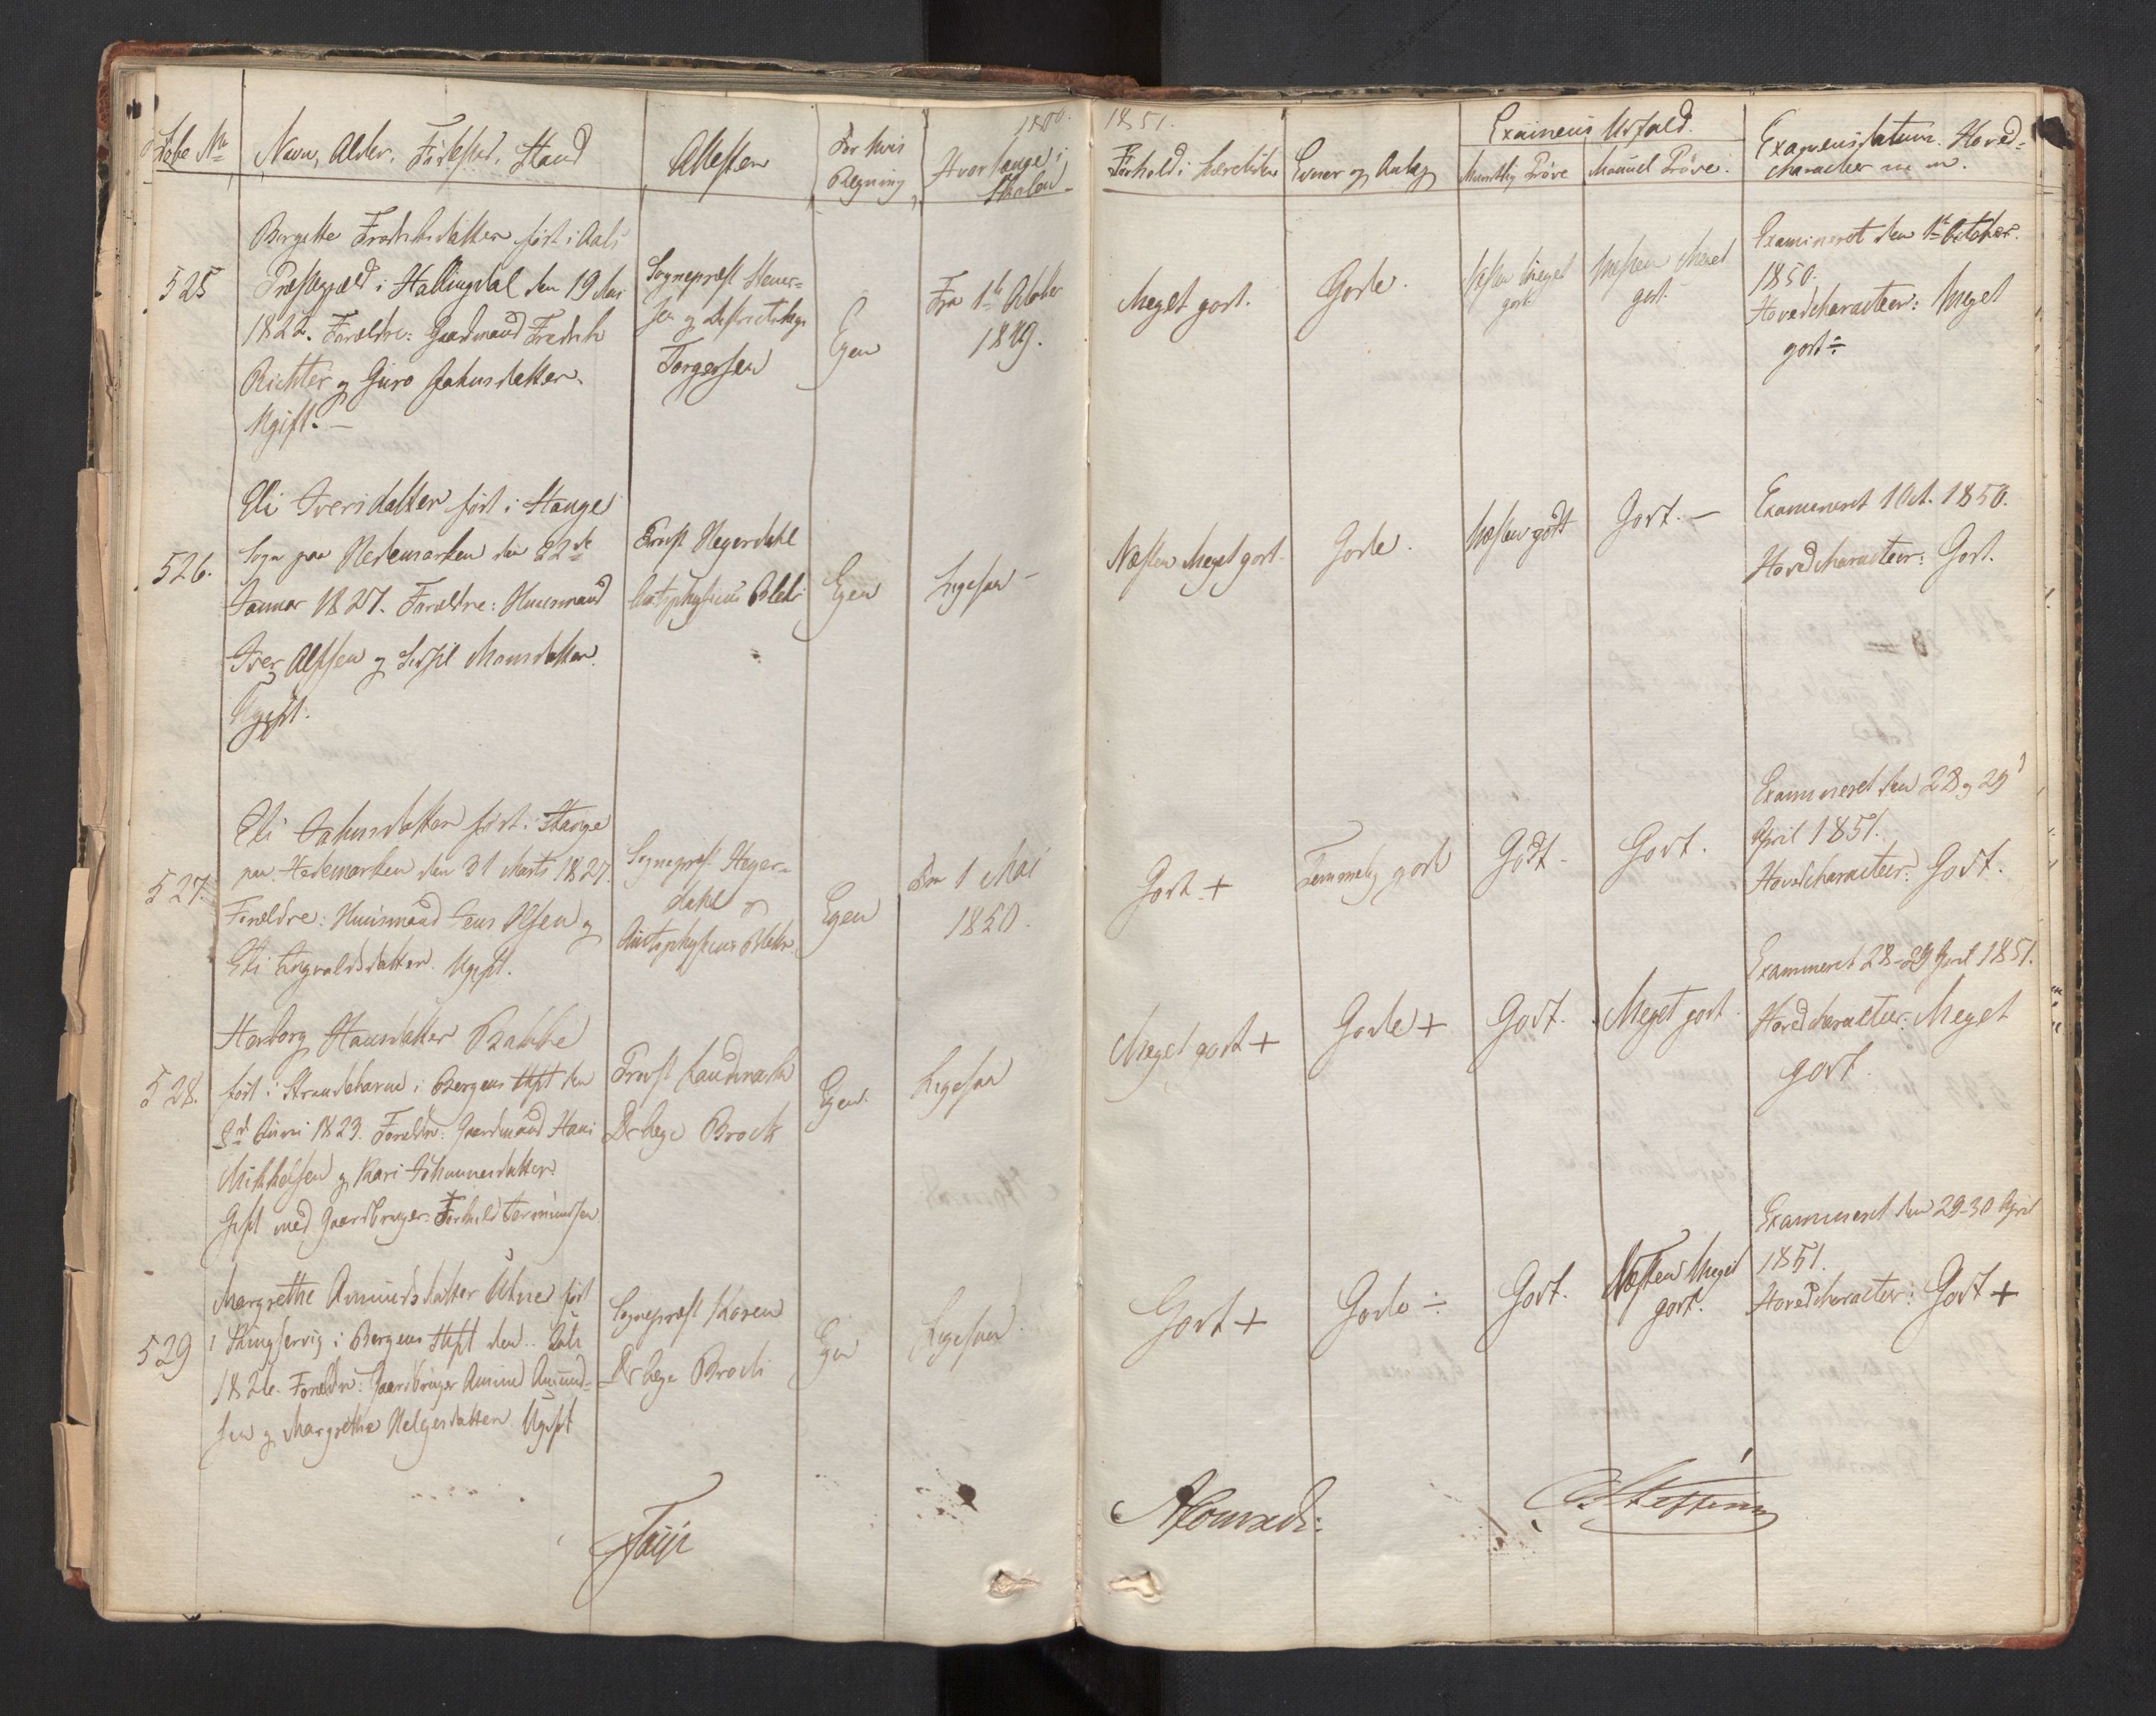 Løbe No
Navn, Alder, Fødested, Stand
Attester
For hvis
Regning
1850.
Hvorlænge i
Skolen
1851.
Forhold i Læretiden
Evner og Anlæg
Examens Udfald.
Mundtlig Prøve
Manuel Prøve.
Examensdatum. Hoved-
character m m.
525
Birgitte Fredriksdatter født i Aals
Præstegjæld i Hallingdal den 19 Mai
1822. Forældre: Gaardmand Fredrik
Richter og Guro Johnsdatter.
Ugift. —
Sognepræst
sen og Districtslæge
Torgersen
Egen
Fra 1te October
1849.
Meget godt.
Gode.
Næsten Meget
godt
Næsten Meget
godt.
Examineret den 1te October
1850.
Hovedcharacteer: Meget
godt ÷
526.
Eli Iversdatter født i Stange
Sogn paa Hedemarken den 22de
Januar 1827. Forældre: Huusmand
Iver Olssen og Sidsel Monsdatter.
Ugift.
Provst Hegerdahl
Amtsphysicus Blehr
Egen
Ligesaa —
Næsten Meget godt.
Gode.
Næsten godt
Godt. —
Examineret 1 Oct. 1850.
Hovedcharacteer: Godt.
527.
Eli Jahnsdatter født i Stange
paa Hedemarken den 31 Marts 1827.
Forældre: Huusmand Jens Olsen og
Eli Engvaldsdatter. Ugift.
Sognepræst Heger-
dahl og
Amtsphysicus Blehr.
Egen
Fra 1 Mai
1850.
Godt +
Temmelig gode
Godt -
Godt.
Examineret den 28 og 29
April 1851.
Hovedcharacteer: Godt.
528.
Herborg Hansdatter Bakke
født i Strandebarm i Bergens Stift den
2d Juni 1823. Forældre: Gaardmand Hans
Mikkelsen og Kari Johannesdatter.
Gift med Gaardbruger Torkild
Provst Landmark
Dr læge Brock
Egen.
Ligesaa
Meget godt +
Gode +
Godt.
Meget godt.
Examineret 28-29 April 1851.
Hovedcharacteer: Meget
godt.
529
Margrethe Amundsdatter Utne født
i Kingservig i Bergens Stift den .. Juli
1826. Forældre: Gaardbruger Amund Amund-
sen og Margrethe Helgesdatter. Ugift
Sognepræst Koren
Dr læge Brock
Egen
Ligesaa.
Godt +
Gode ÷
Godt.
Næsten Meget
godt.
Examineret den 29-30 April
1851.
Hovedcharacteer: Godt +
Faye
AConradi.
Steffens